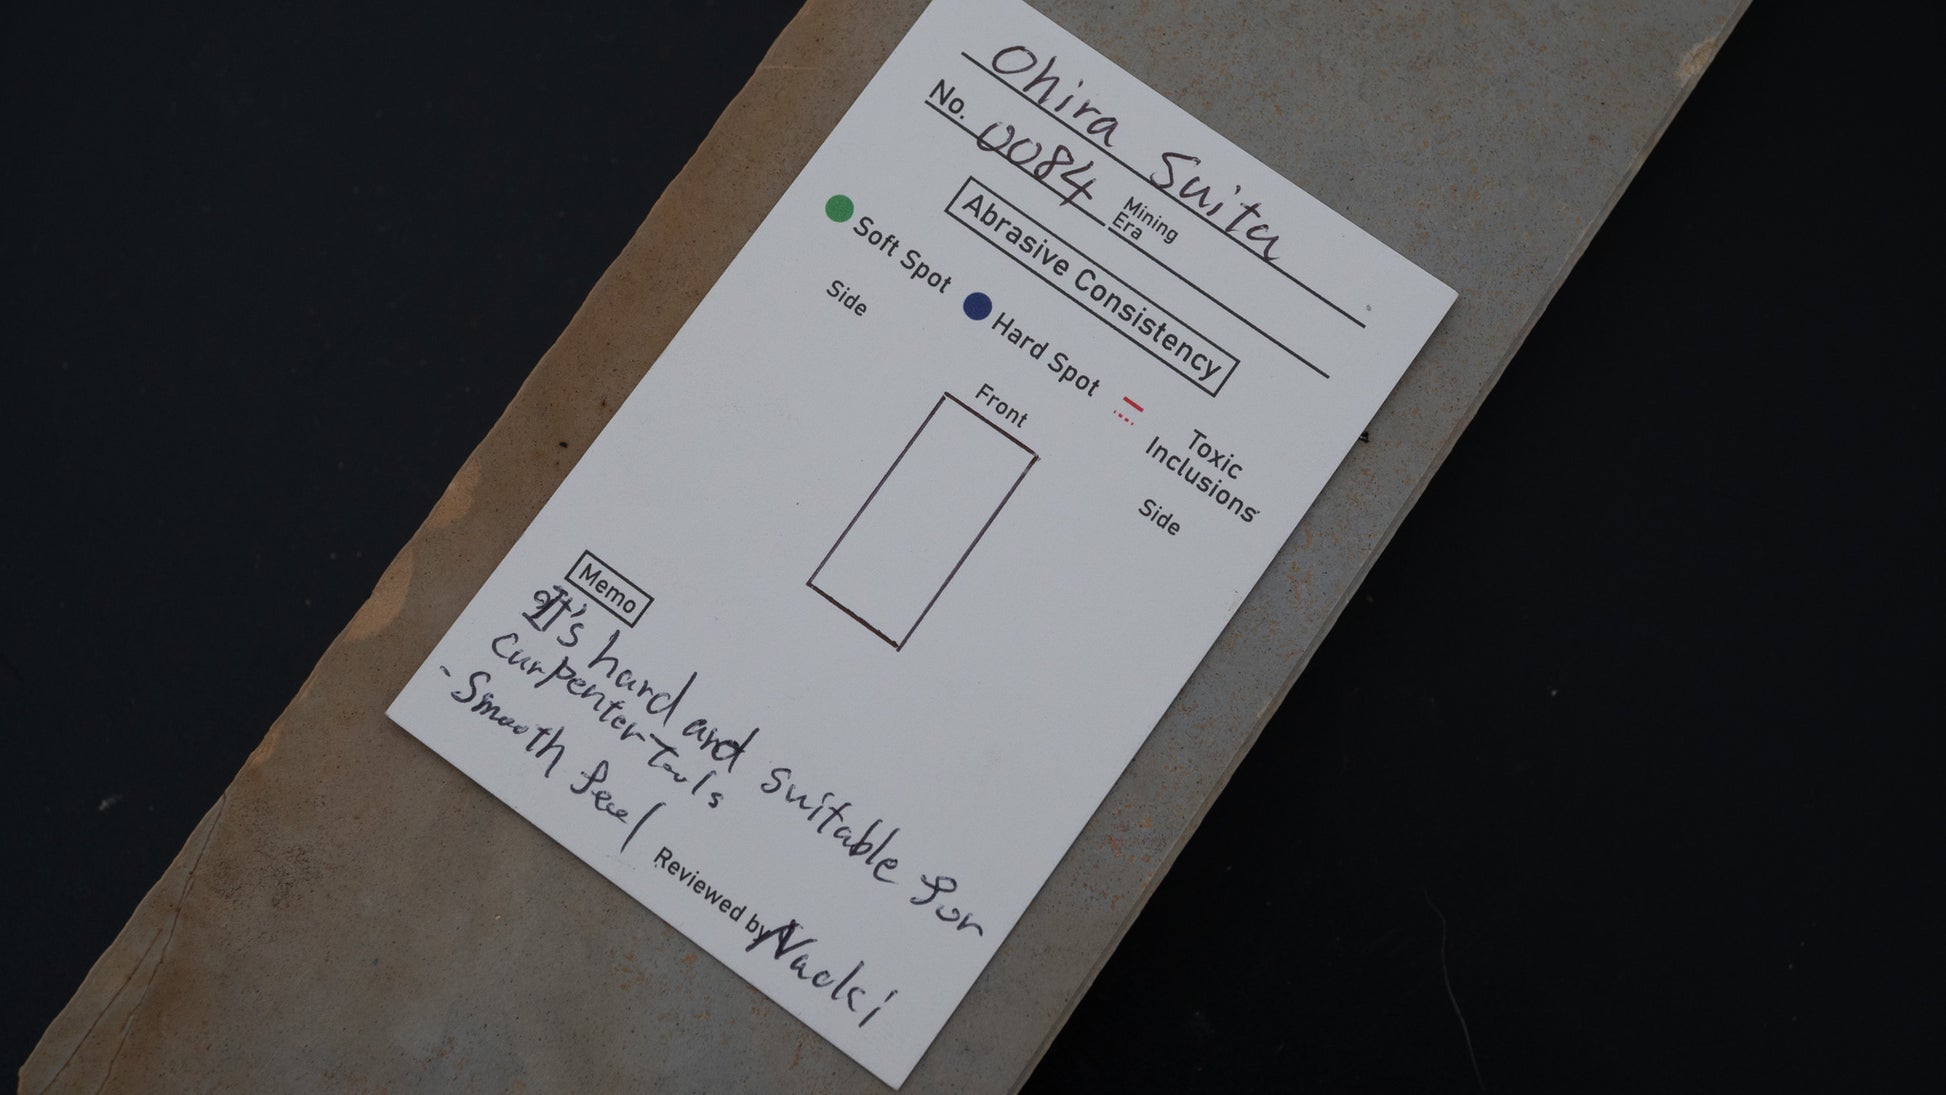 Ohira Suita
No. 0084 Mining Era
Abrasive Consistency
Soft Spot Hard Spot Toxic Inclusions
Side Front Side
Memo
It's hard and suitable for
carpenter tools
- Smooth feel
Reviewed by Naoki